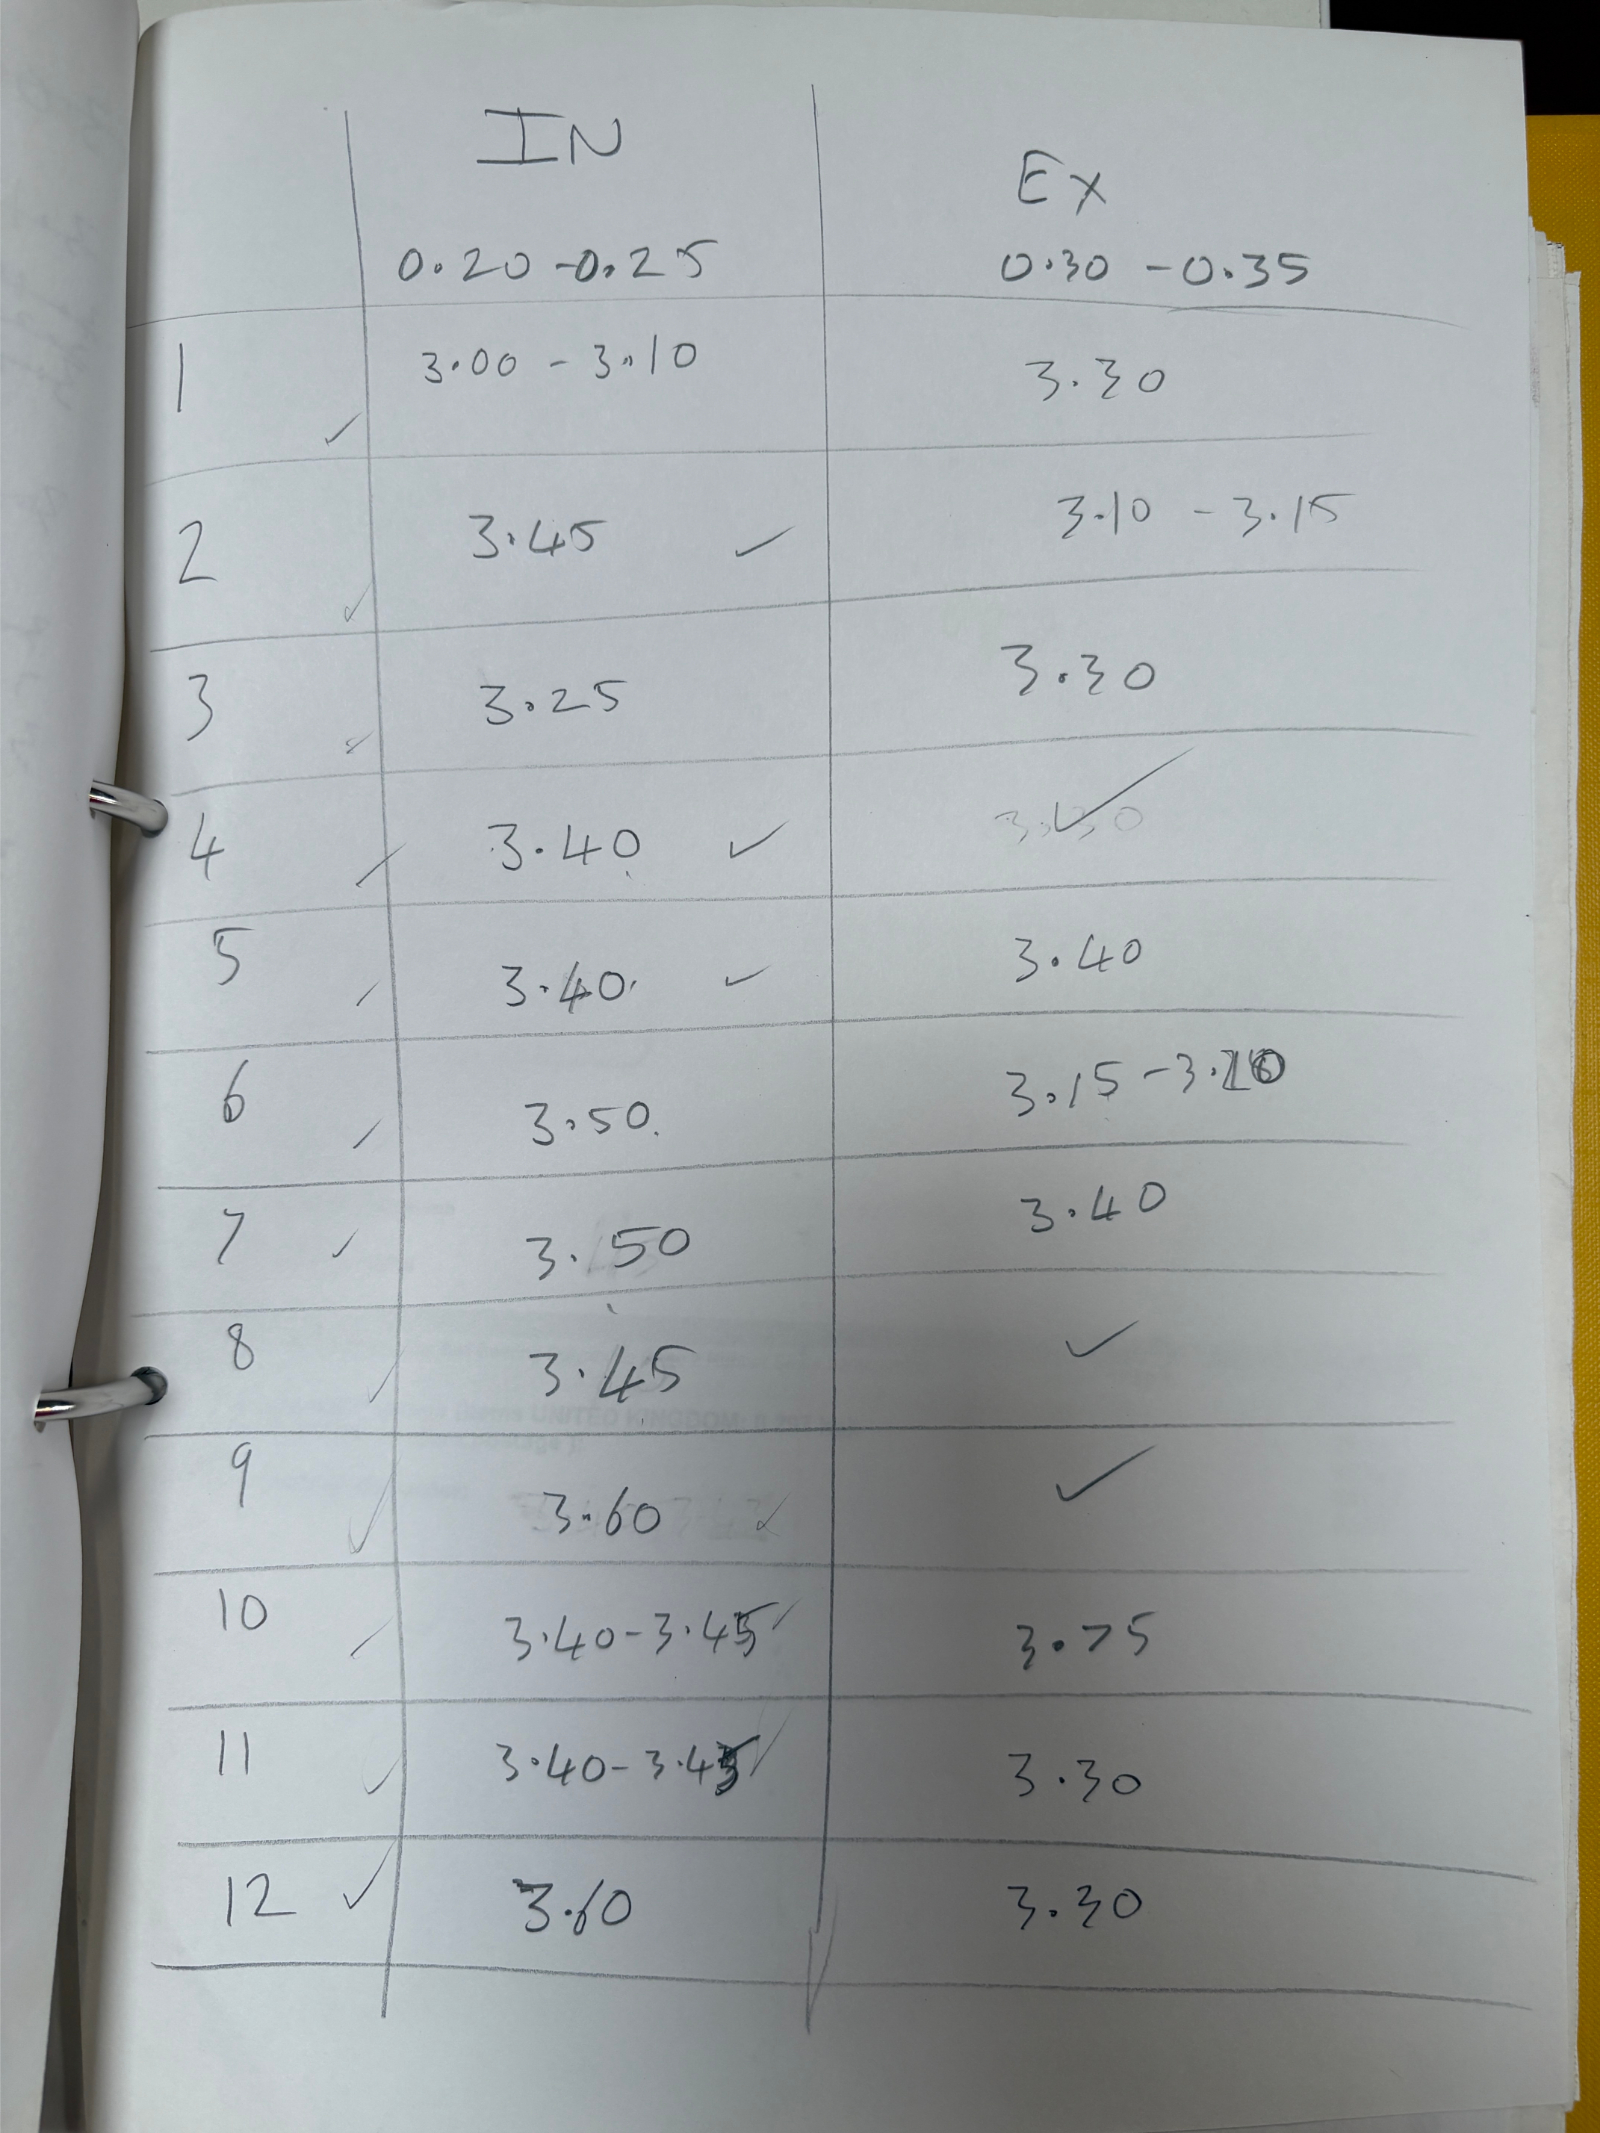 IN
Ex
0.20 - 0.25
0.30 - 0.35
1 ✓ 3.00 - 3.10 3.30
2 ✓ 3.45 ✓ 3.10 - 3.15
3 ✓ 3.25 3.30
4 ✓ 3.40 ✓ ✓
5 ✓ 3.40 ✓ 3.40
6 ✓ 3.50 3.15 - 3.20
7 ✓ 3.50 3.40
8 ✓ 3.45 ✓
UNITED KINGDOM:
9 ✓ 3.60 ✓ ✓
10 ✓ 3.40 - 3.45 ✓ 3.75
11 ✓ 3.40 - 3.45 ✓ 3.30
12 ✓ 3.60 3.30